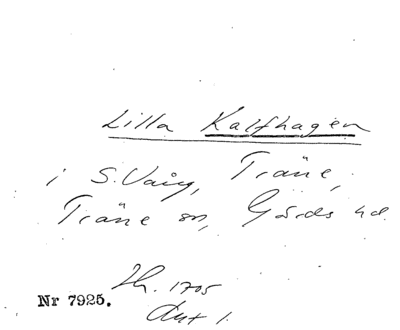 Lilla Kalfhagen
i S. Vång, Träne,
Träne sn, Gärds hd.
Lh. 1705
Nr 7925.
Akt 1.